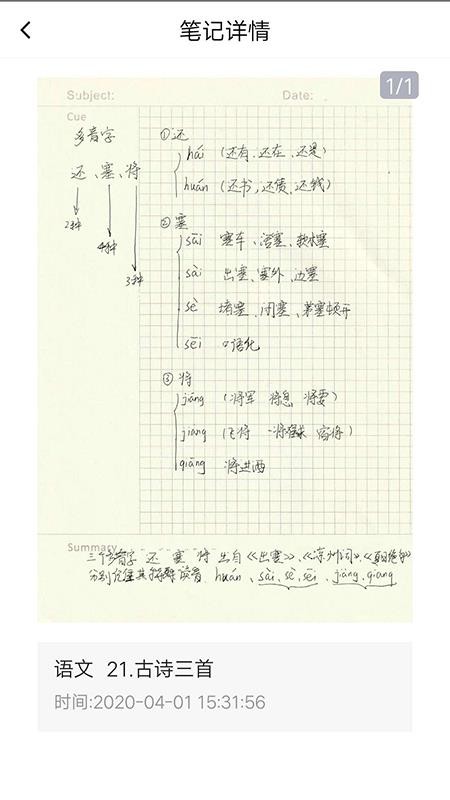 笔记详情
1/1
Subject: Date:
Cue
多音字
还、塞、将
2种
4种
3种
①还
hái (还有、还在、还是)
huán (还书,还债、还钱)
②塞
sāi 塞车、活塞、软木塞
sài 出塞、塞外、边塞
sè 堵塞、闭塞、茅塞顿开
sēi 口语化
③将
jiāng (将军 将息 将要)
jiàng (飞将
qiāng 将进酒
Summary
三个多音字 还 塞 将 出自《出塞》、《凉州词》、《夏日绝句》
分别 其 读音 huán、sāi、sè、sēi、jiāng、qiang
语文 21.古诗三首
时间:2020-04-01 15:31:56